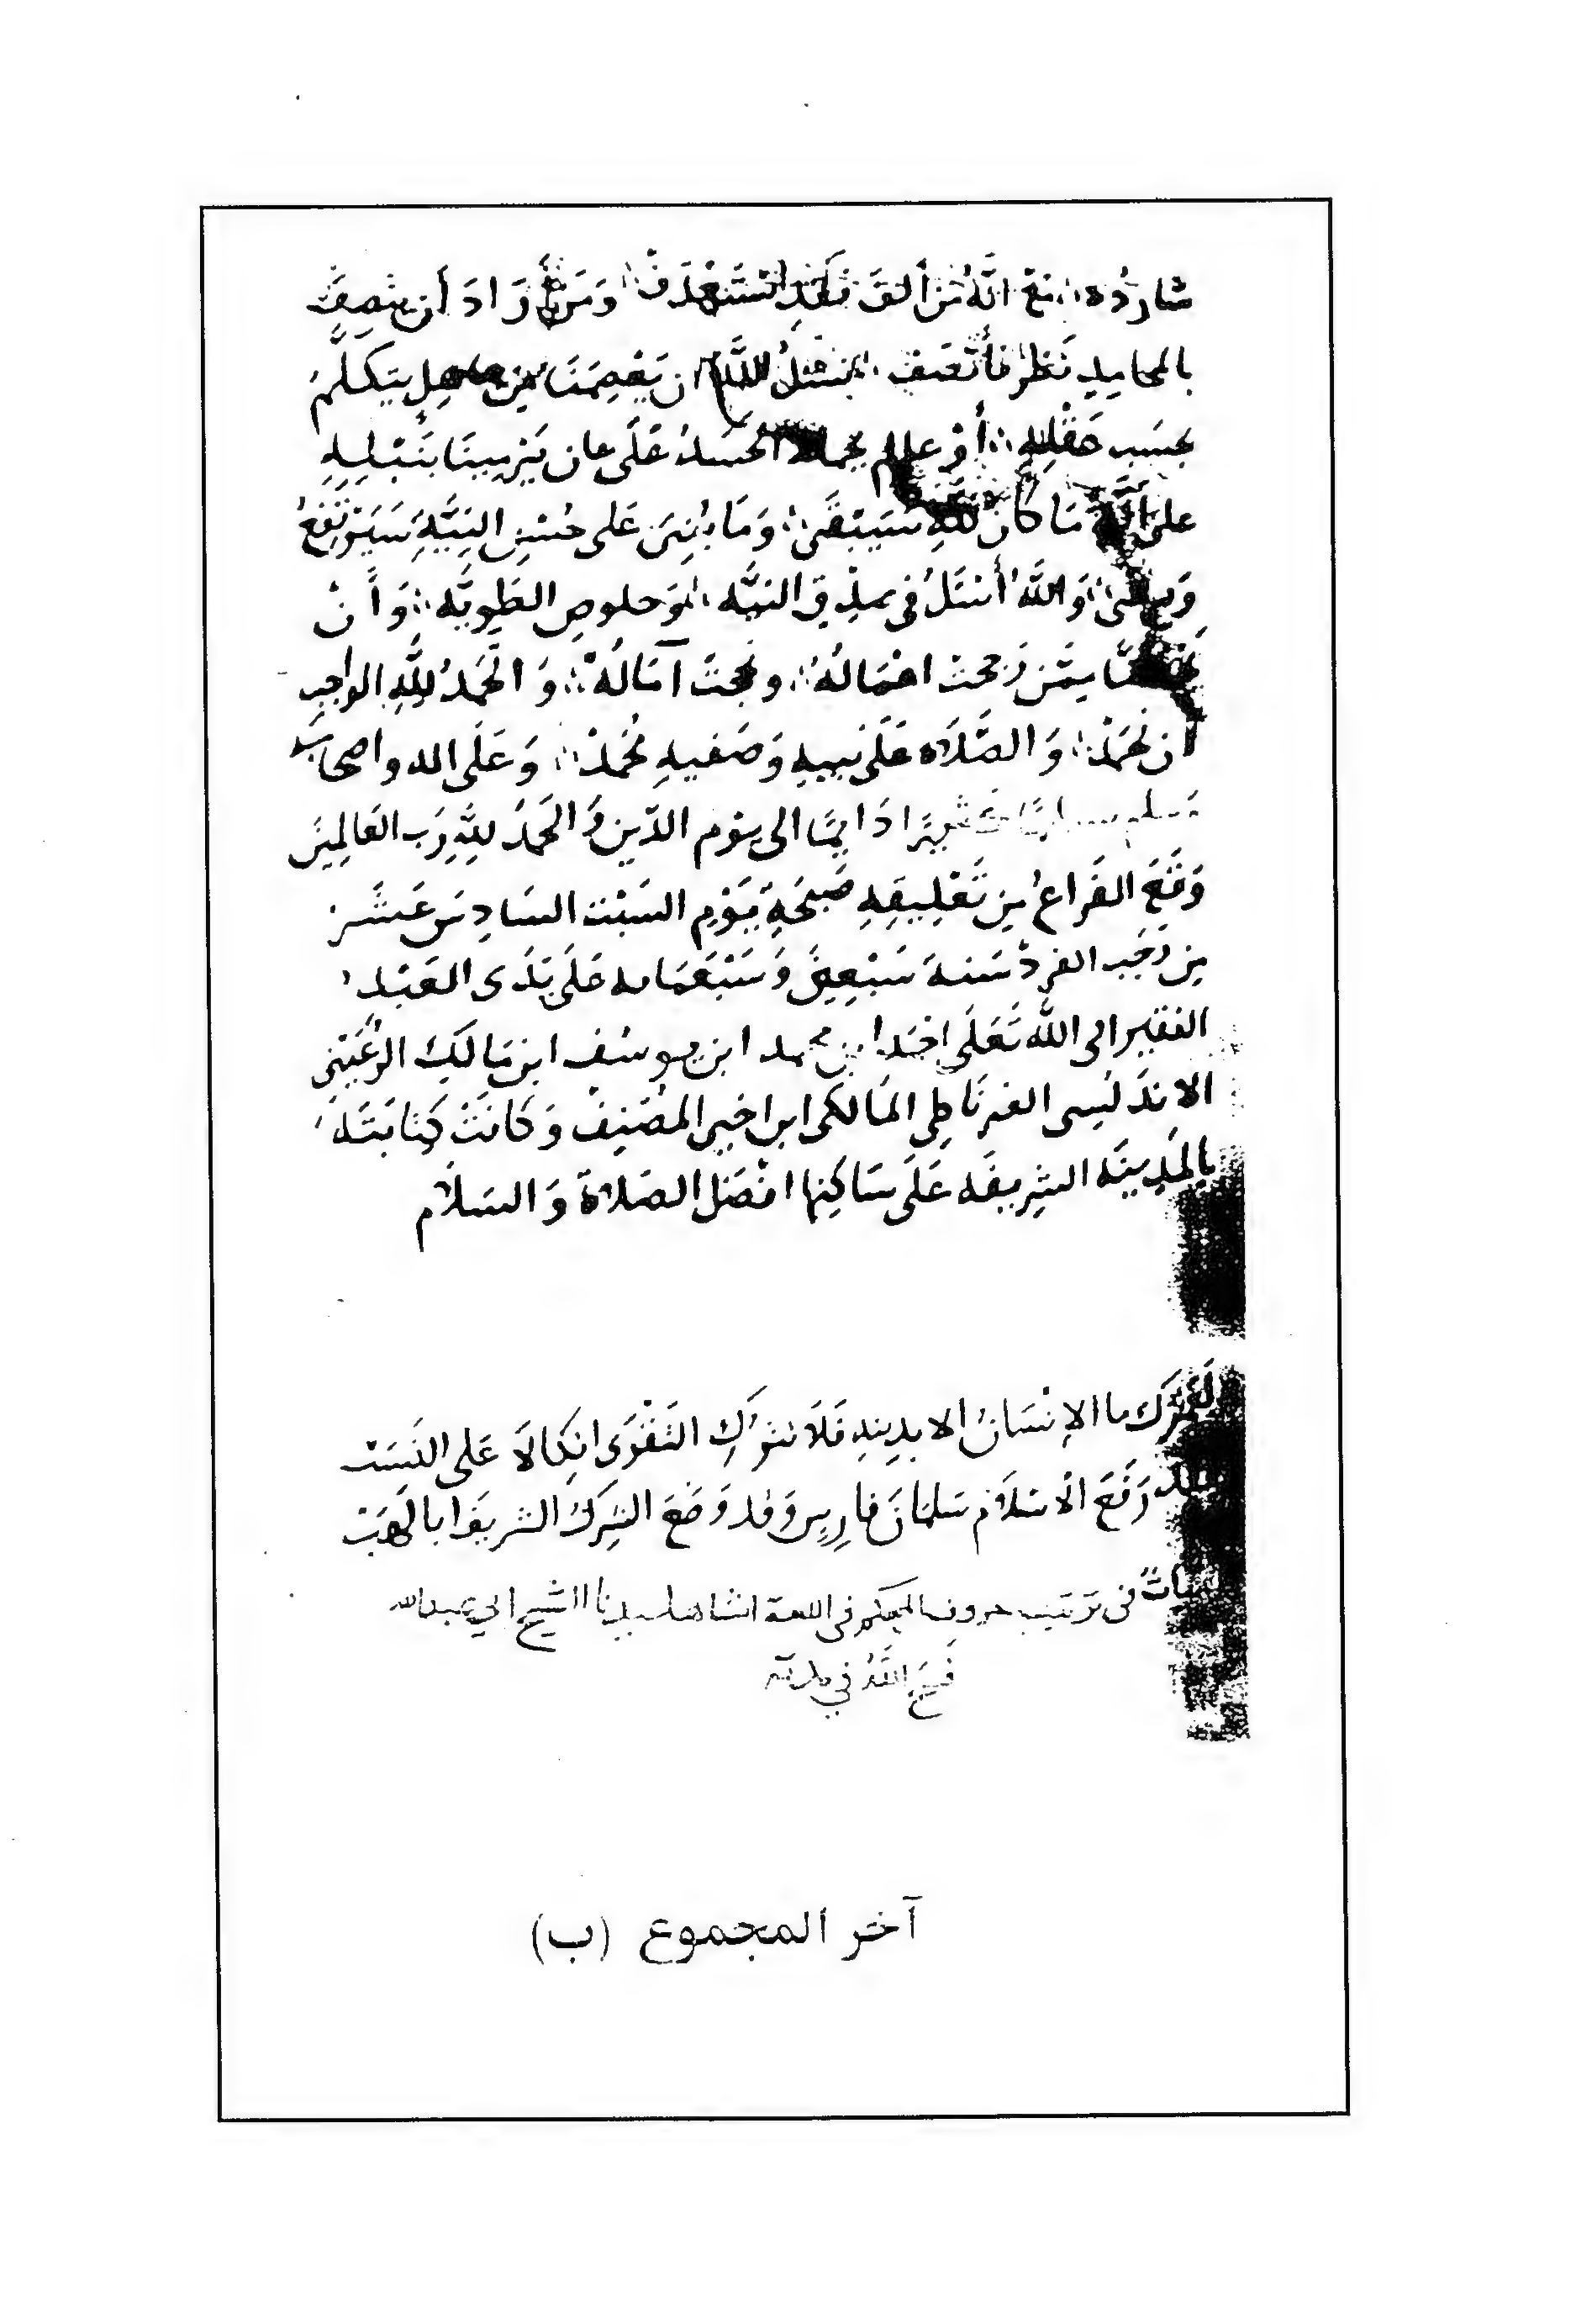 شارده ∴ مَعْ انَّهُ مَن ألفَ فَقَدِ اسْتَهْدَفْ ∴ وَمَنْ أرَادَ أن يتصِفَ
بالمحامِدِ نَظَر فأنْصَف ∴ نسْئلُ اللَّهَ ان يَعْصِمَنَا مِن جاهِلٍ يَتَكَلَّمُ
بحسَب جَهْلِهِ ∴ أوْ عالم يحمله الحَسَدُ عَلَى ان يَرْمِينَا بنَبْلِهِ
على أَنَّهُ مَا كَانَ للهِ سَيَبْقَى ∴ وَمَا بُنِىَ عَلى حُسْنِ النِيَّةِ سَيَرْتَفِعُ
وَيرقى ∴ وَاللَّهَ أسْئَلُ فى صِدْقِ النيَّه ∴ وَخلوصِ الطَوِيَّه ∴ وَأنْ
يَجْعَلنَا مِمَّنْ رَجحتْ اعْمَالُهُ ∴ ونجحتْ آمَالُهُ ∴ وَالحَمدُ للَّهِ الواجِبِ
ان نحمَدْ ∴ وَالصَّلَاه عَلَى نبِيهِ وَصَفيهِ مُحَمدْ ∴ وَعَلَى اله واصحابه
وَسلم تسليمًا كَثِيرًا دَايمًا الى يَوْم الدّين وَالحَمدُ للهِ رَب العَالمِينَ
وَقَعَ الفَراغ مِن تَعْلِيقِهِ صَبِيحَةِ يَوْمِ السَبْت السَادِسَ عَشَر
مِن رَجَب الفرد سَنةَ سَبْعِينَ وَسَبْعَمَايه عَلَى يَدَى العَبْد
الفقير الى الله تَعَلَى احْمَد ابن محمد ابن يوسُف ابن مَالِك الرُعَيْنى
الاندَلُسى الغرنَاطِى المَالكى ابن اخى المُصَنِفْ وَكَانَتْ كِتَابَتَه
بِالمَدِينَه الشرِيفَه عَلَى سَاكِنِهَا افْضَل الصَلاة وَالسَلام
لَعَمْرُكَ ما الإنْسَانُ الا بدِينِهِ فَلَا تَتْرُكِ التَقْوَى اتكَالاً عَلى النَسَبْ
لقد رَفَعَ الاسْلَامُ سَلمَانَ فارِسٍ وَقد وَضَعَ الشِرْكُ الشريفَ ابا لهَبْ
أبياتٌ فى تَرتيب حروف المحكم فى اللغة انشاها سيدنا الشيخ ابي عبدالله
فَسَحَ اللَّهُ في مدته
آخر المجموع (ب)